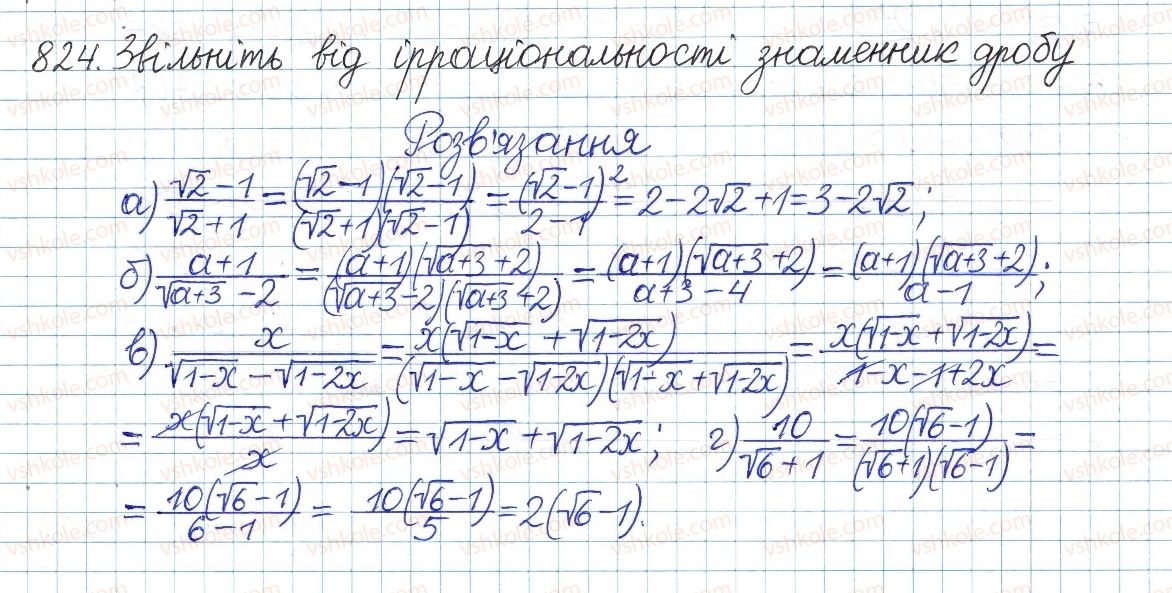 824. Звільніть від ірраціональності знаменник дробу
Розв'язання
а) (√2 − 1)/(√2 + 1) = ((√2 − 1)(√2 − 1))/((√2 + 1)(√2 − 1)) = (√2 − 1)²/(2 − 1) = 2 − 2√2 + 1 = 3 − 2√2;
б) (a + 1)/(√(a+3) − 2) = ((a+1)(√(a+3) + 2))/((√(a+3) − 2)(√(a+3) + 2)) = ((a+1)(√(a+3) + 2))/(a + 3 − 4) = ((a+1)(√(a+3) + 2))/(a − 1);
в) x/(√(1−x) − √(1−2x)) = x(√(1−x) + √(1−2x))/((√(1−x) − √(1−2x))(√(1−x) + √(1−2x))) = x(√(1−x) + √(1−2x))/(1 − x − 1 + 2x) =
= x(√(1−x) + √(1−2x))/x = √(1−x) + √(1−2x); г) 10/(√6 + 1) = 10(√6 − 1)/((√6 + 1)(√6 − 1)) =
= 10(√6 − 1)/(6 − 1) = 10(√6 − 1)/5 = 2(√6 − 1).
vshkole.com